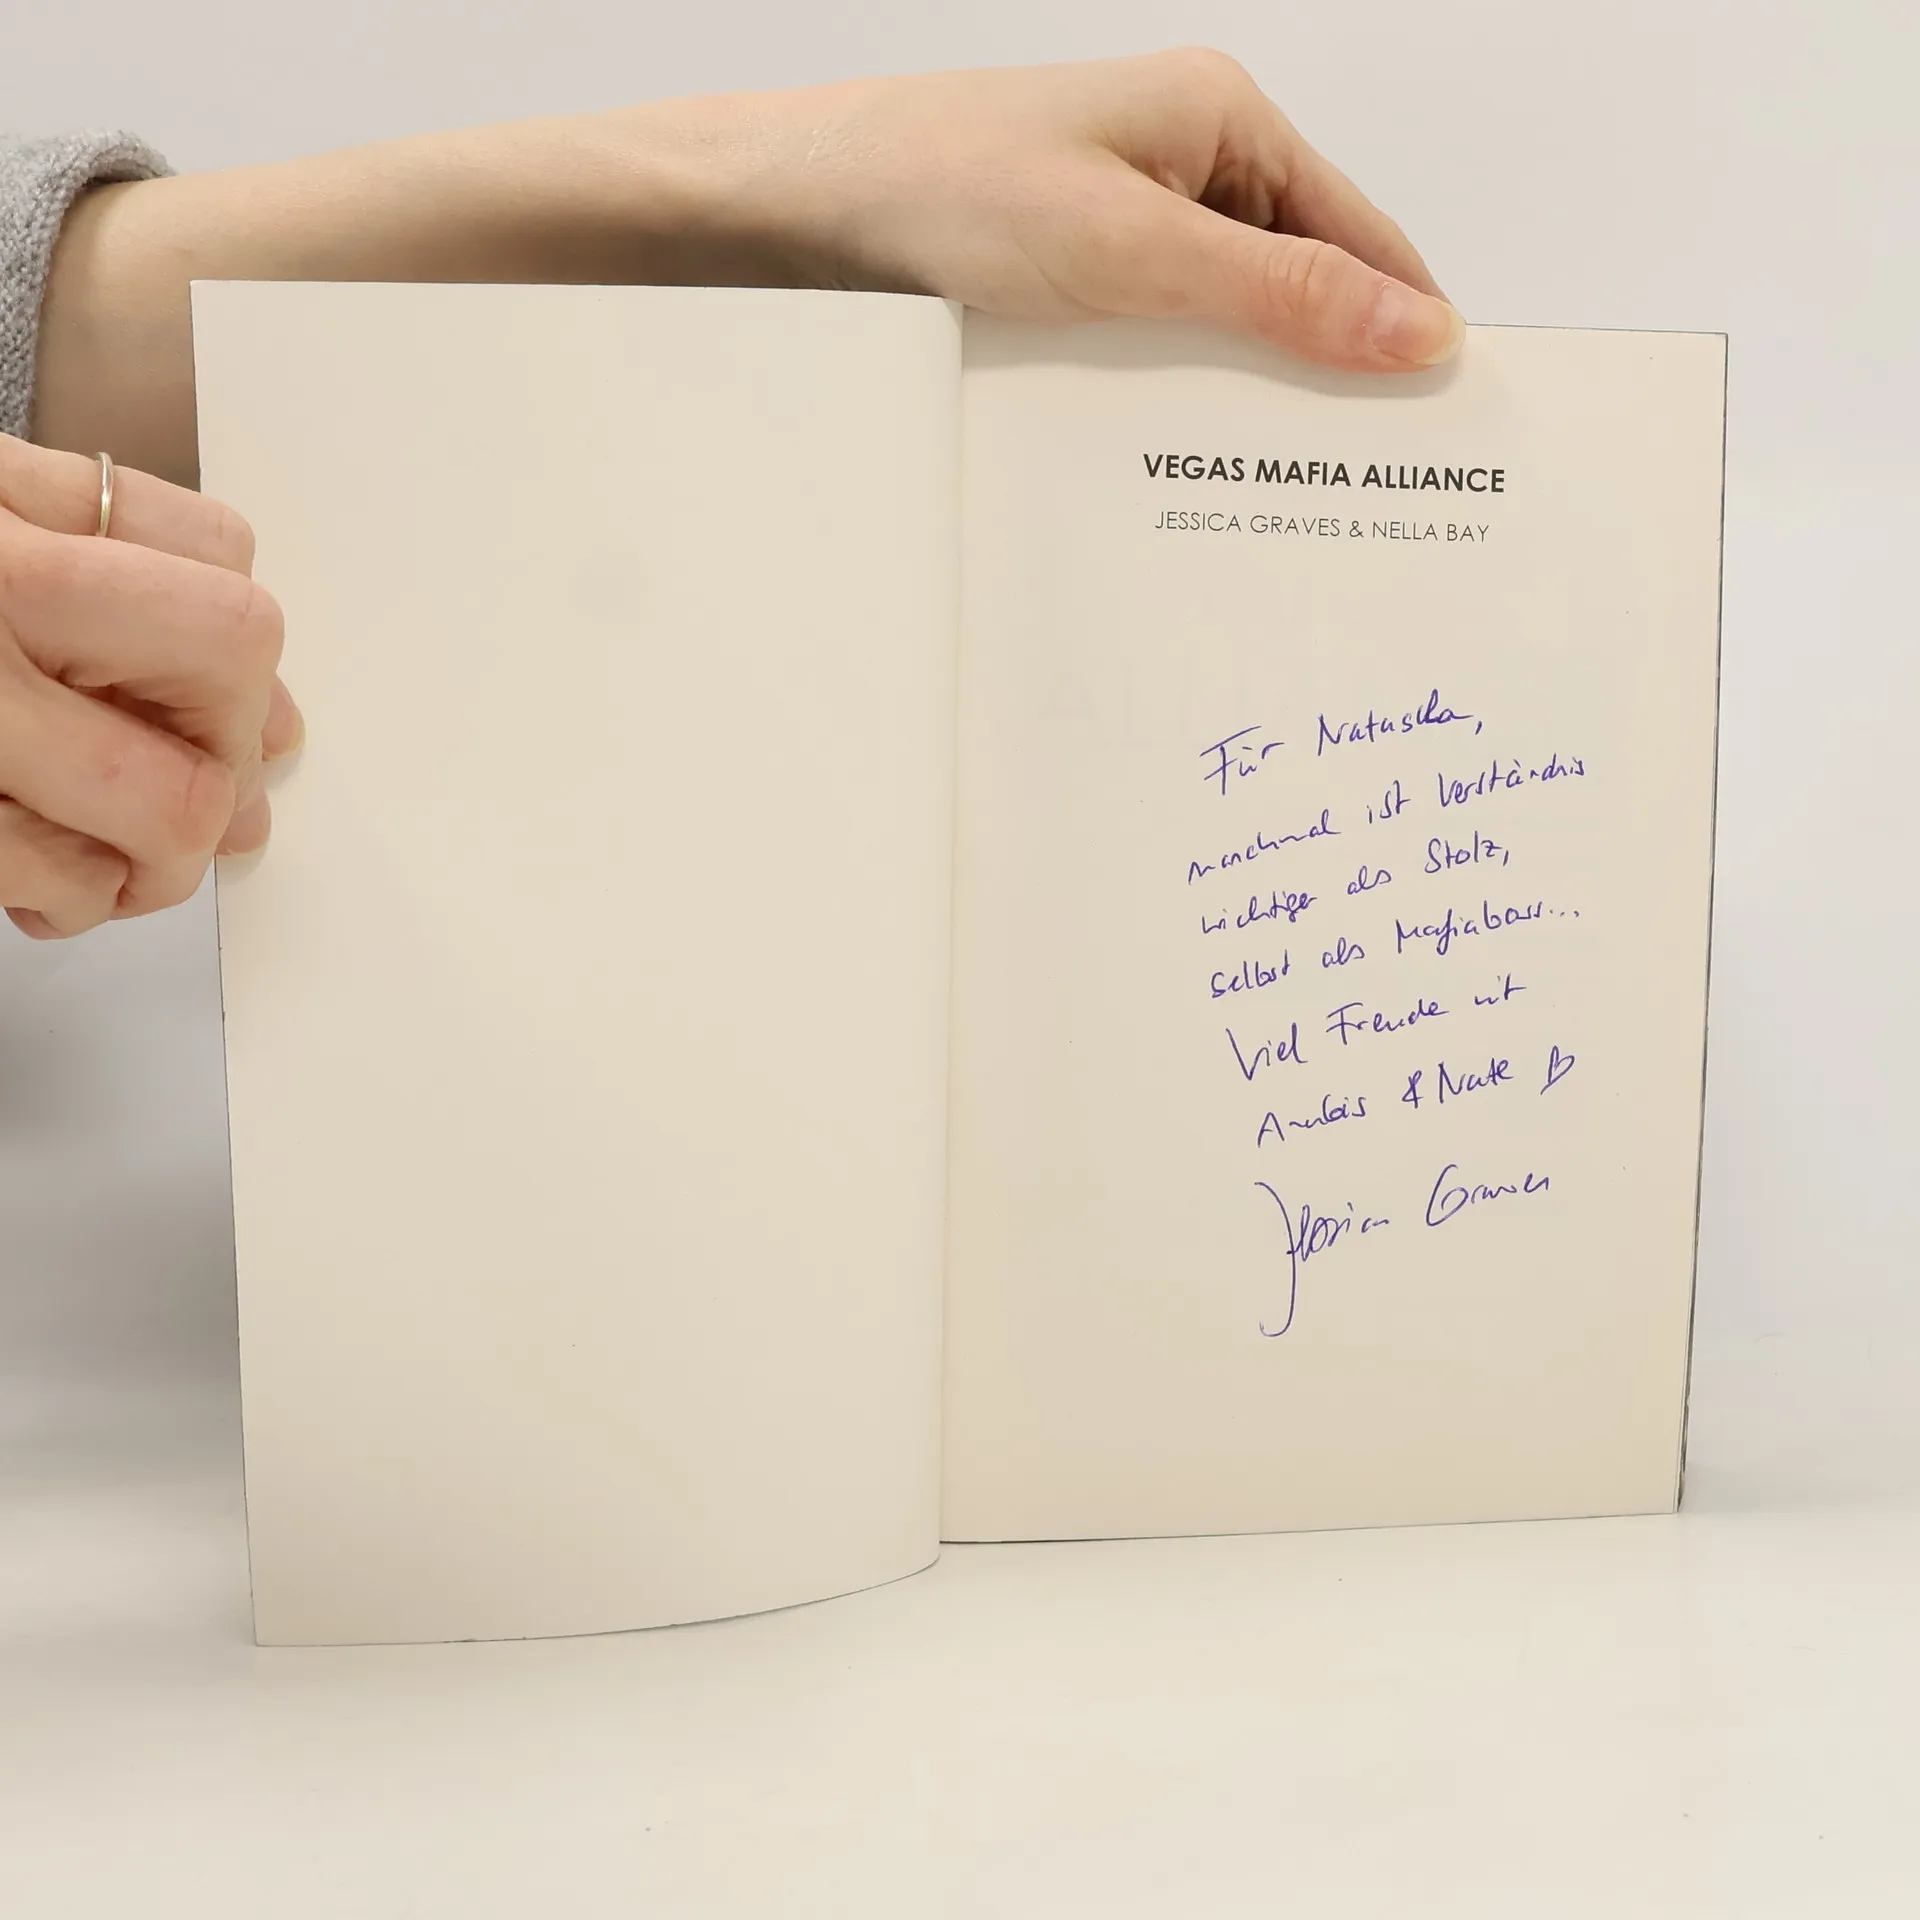 VEGAS MAFIA ALLIANCE
JESSICA GRAVES & NELLA BAY
Für Natascha,
manchmal ist Verständnis
wichtiger als Stolz,
selbst als Mafiaboss...
Viel Freude mit
& Nate ♡
Graves